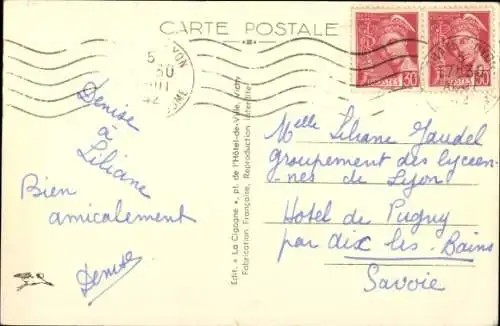 CARTE POSTALE
Denise
à
Liliane
Bien
amicalement
Denise
Edit. « La Cigogne », pl. de l'Hôtel-de-Ville, Vichy
Fabrication Française, Reproduction interdite
LYON
5
42
30
30
POSTES
Melle Liliane Gaudel
groupement des lycéen-
-nes de Lyon
Hôtel de Pugny
par Aix les Bains
Savoie